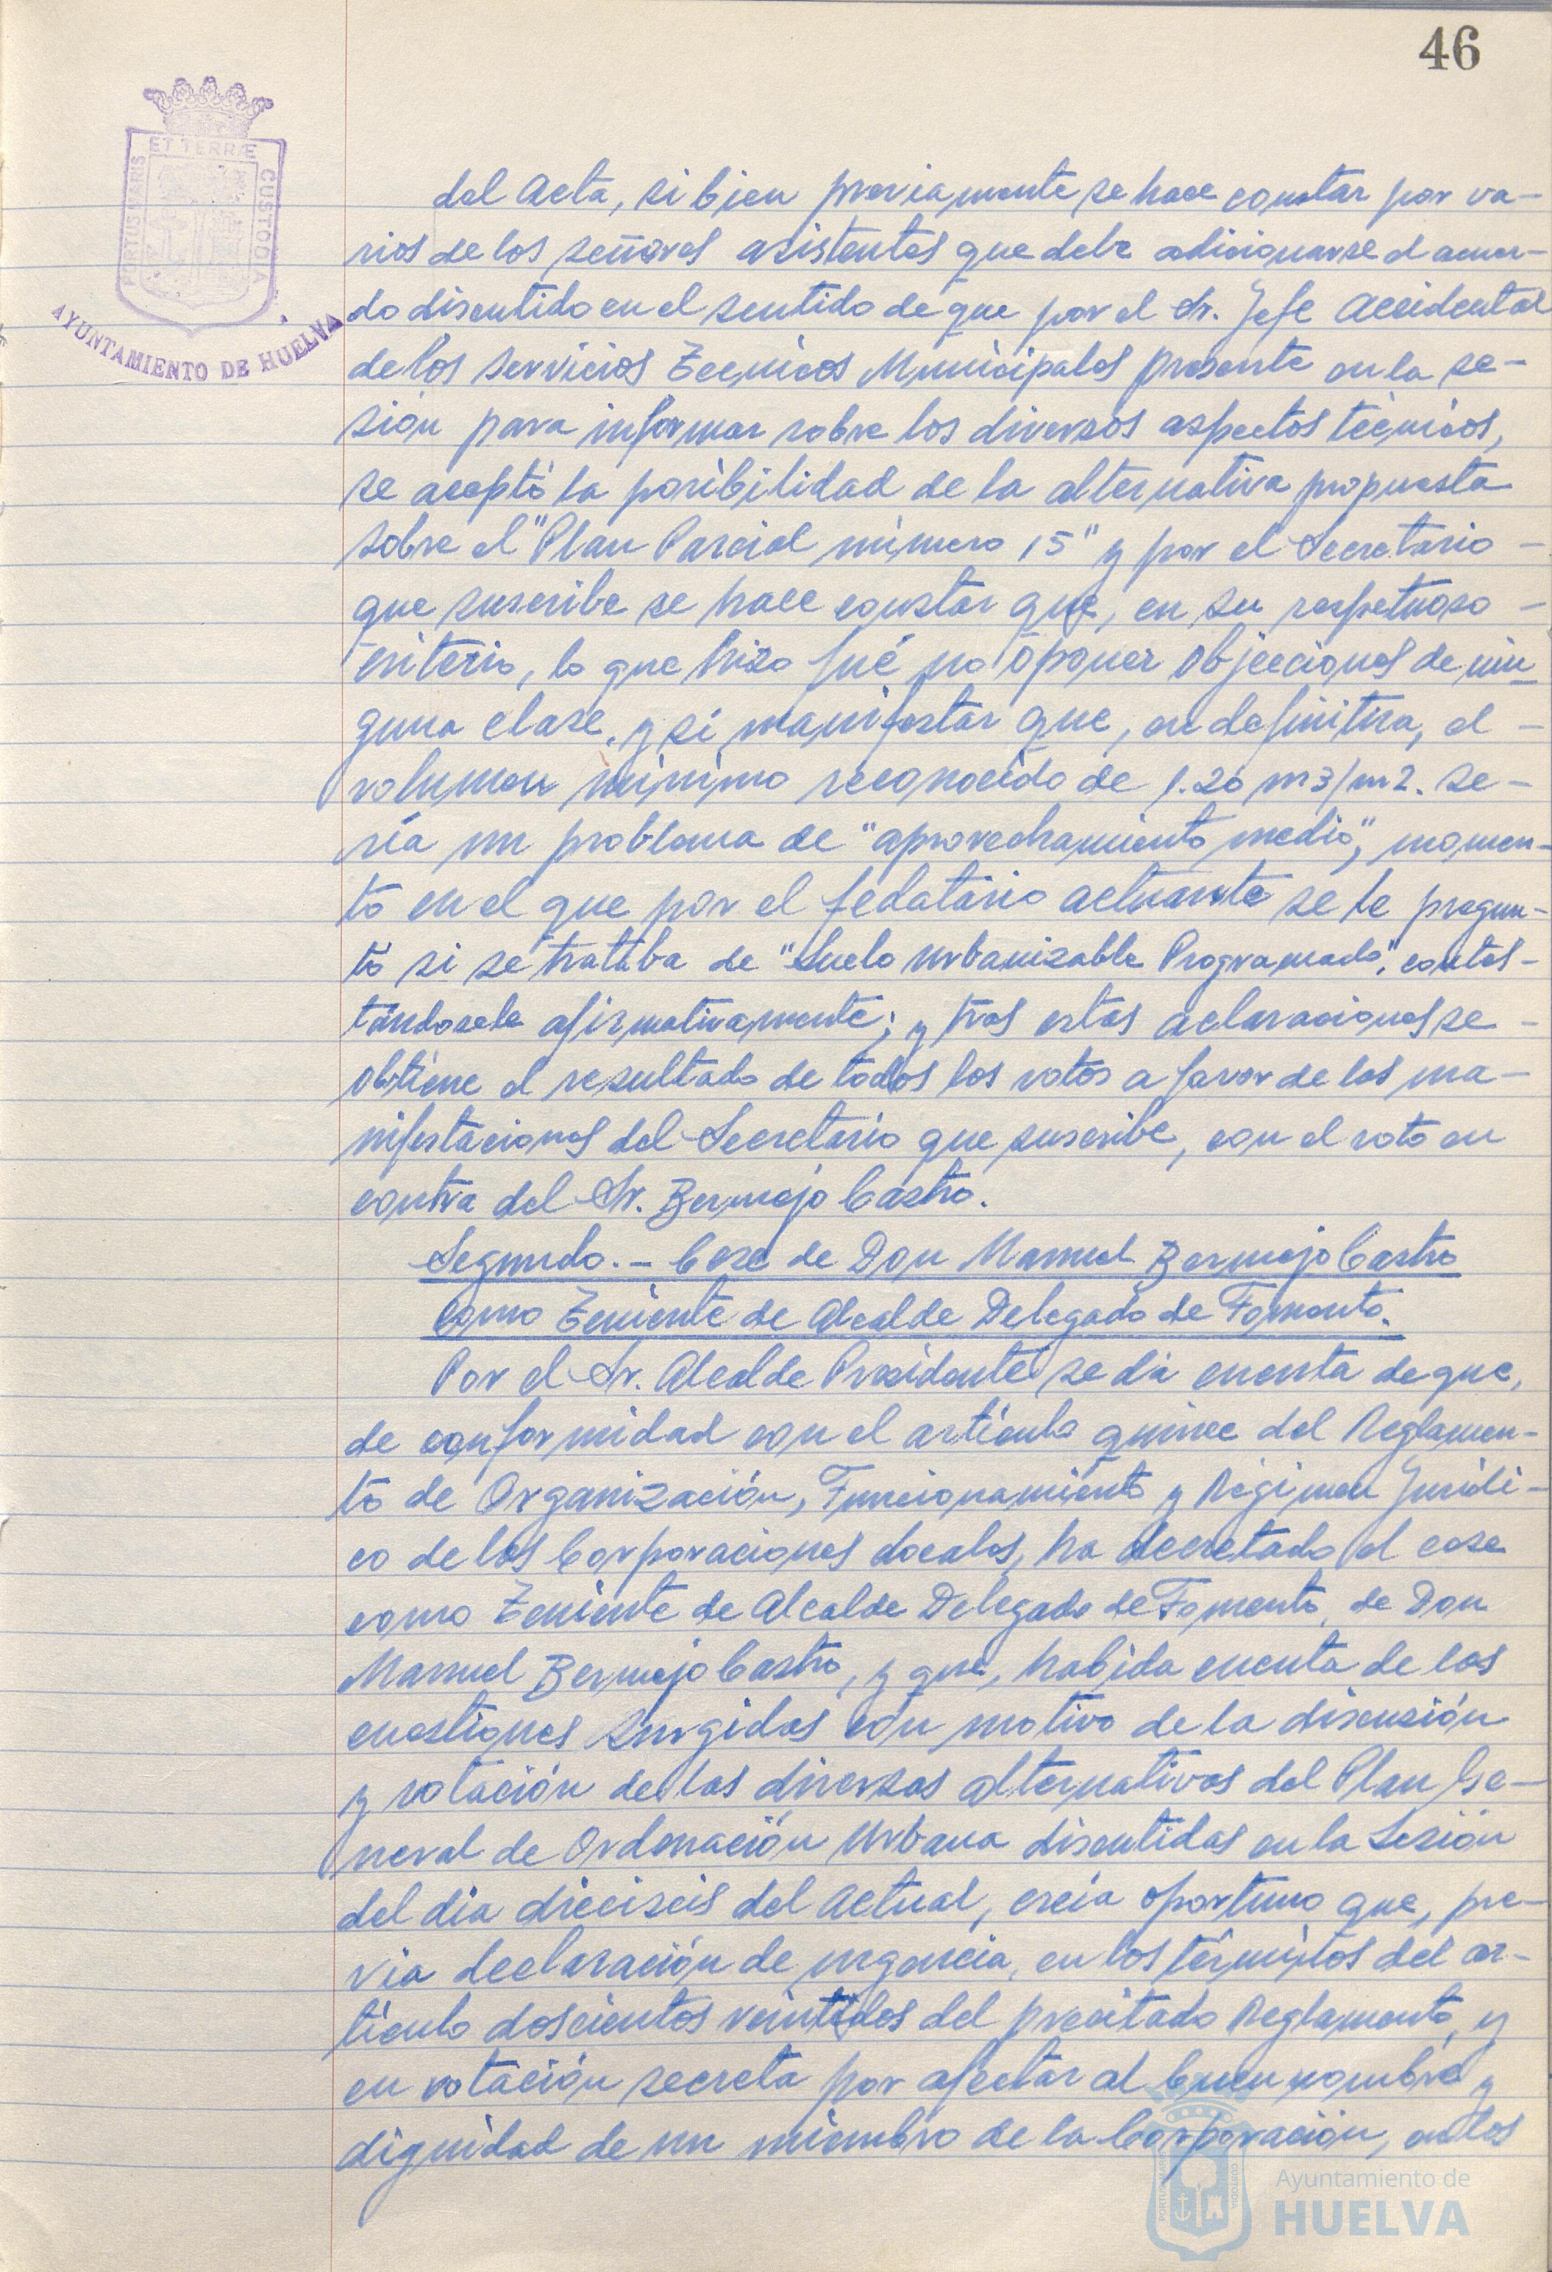 46
ET TERRÆ
PORTUS MARIS
CUSTODIA
AYUNTAMIENTO DE HUELVA
del Acta, si bien previamente se hace constar por va-
rios de los señores asistentes que debe adicionarse el acuer-
do discutido en el sentido de que por el Sr. Jefe Accidental
de los Servicios Tecnicos Municipales presente en la se-
sión para informar sobre los diversos aspectos técnicos,
se aceptó la posibilidad de la alternativa propuesta
sobre el "Plan Parcial número 15" y por el Secretario -
que suscribe se hace constar que, en su respetuoso -
criterio, lo que hizo fué no oponer objecciones de nin
guna clase, y si manifestar que, en definitiva, el -
volumen mínimo reconocido de 1.20 m3/m2. se-
ría un problema de "aprovechamiento medio", momen-
to en el que por el fedatario actuante se le pregun-
tó si se trataba de "Suelo Urbanizable Programado", contes-
tándosele afirmativamente; y tras estas aclaraciones se -
obtiene el resultado de todos los votos a favor de las ma-
nifestaciones del Secretario que suscribe, con el voto en
contra del Sr. Bermejo Castro.
Segundo. - Cese de Don Manuel Bermejo Castro
como Teniente de Alcalde Delegado de Fomento.
Por el Sr. Alcalde Presidente se da cuenta de que,
de conformidad con el artículo quince del Reglamen-
to de Organización, Funcionamiento y Régimen Jurídi-
co de las Corporaciones Locales, ha decretado el cese
como Teniente de Alcalde Delegado de Fomento, de Don
Manuel Bermejo Castro, y que, habida cuenta de las
cuestiones surgidas con motivo de la discusión
y votación de las diversas alternativas del Plan Ge-
neral de Ordenación Urbana discutidas en la Sesión
del dia dieciseis del actual, creia oportuno que, pre-
via declaración de urgencia, en los términos del ar-
tículo doscientos veintidos del precitado Reglamento, y
en votación secreta por afectar al buen nombre y
dignidad de un miembro de la Corporación, en los
Ayuntamiento de
HUELVA